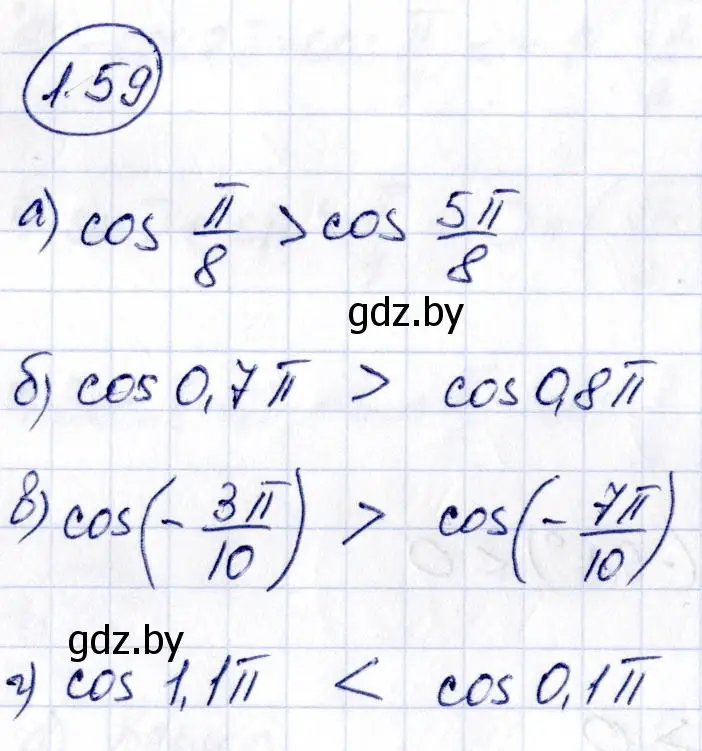 1.59
а) cos π/8 > cos 5π/8
gdz.by
б) cos 0,7π > cos 0,8π
в) cos(-3π/10) > cos(-7π/10)
gdz.by
г) cos 1,1π < cos 0,1π